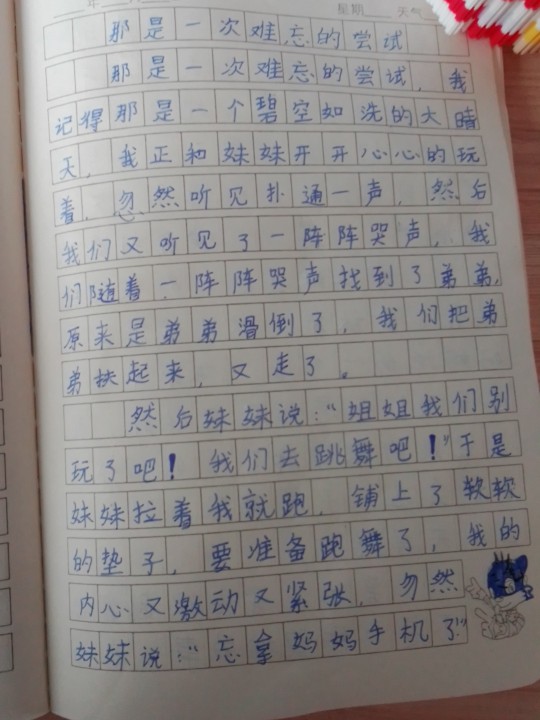 年
星期 天气
那是一次难忘的尝试
那是一次难忘的尝试，我
记得那是一个碧空如洗的大晴
天，我正和妹妹开开心心的玩
着，忽然听见扑通一声，然后
我们又听见了一阵阵哭声，我
们随着一阵阵哭声找到了弟弟，
原来是弟弟滑倒了，我们把弟
弟扶起来，又走了。
然后妹妹说：“姐姐我们别
玩了吧！我们去跳舞吧！”于是
妹妹拉着我就跑，铺上了软软
的垫子，要准备跑舞了，我的
内心又激动又紧张，忽然
妹妹说：“忘拿妈妈手机了。”